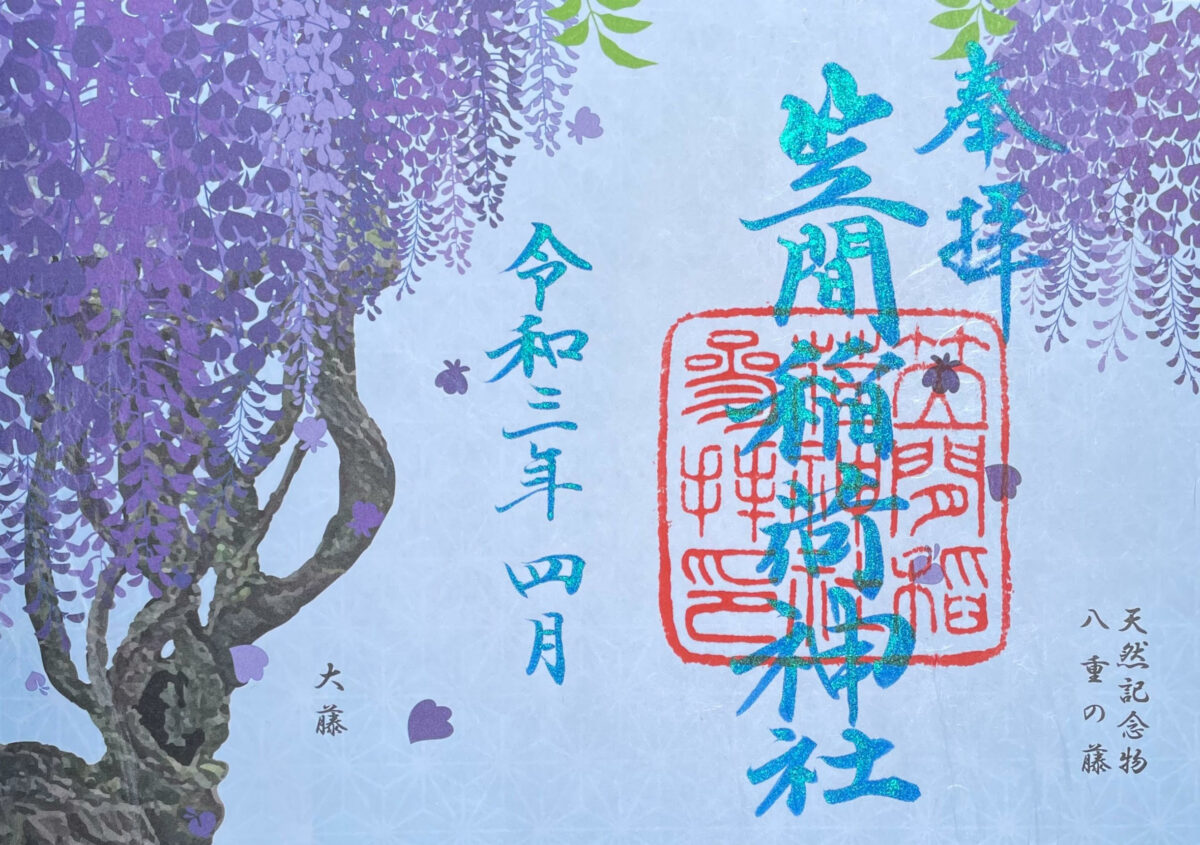 奉拝
笠間稲荷神社
笠間稲
荷神社
参拝印
令和三年 四月
天然記念物
八重の藤
大藤